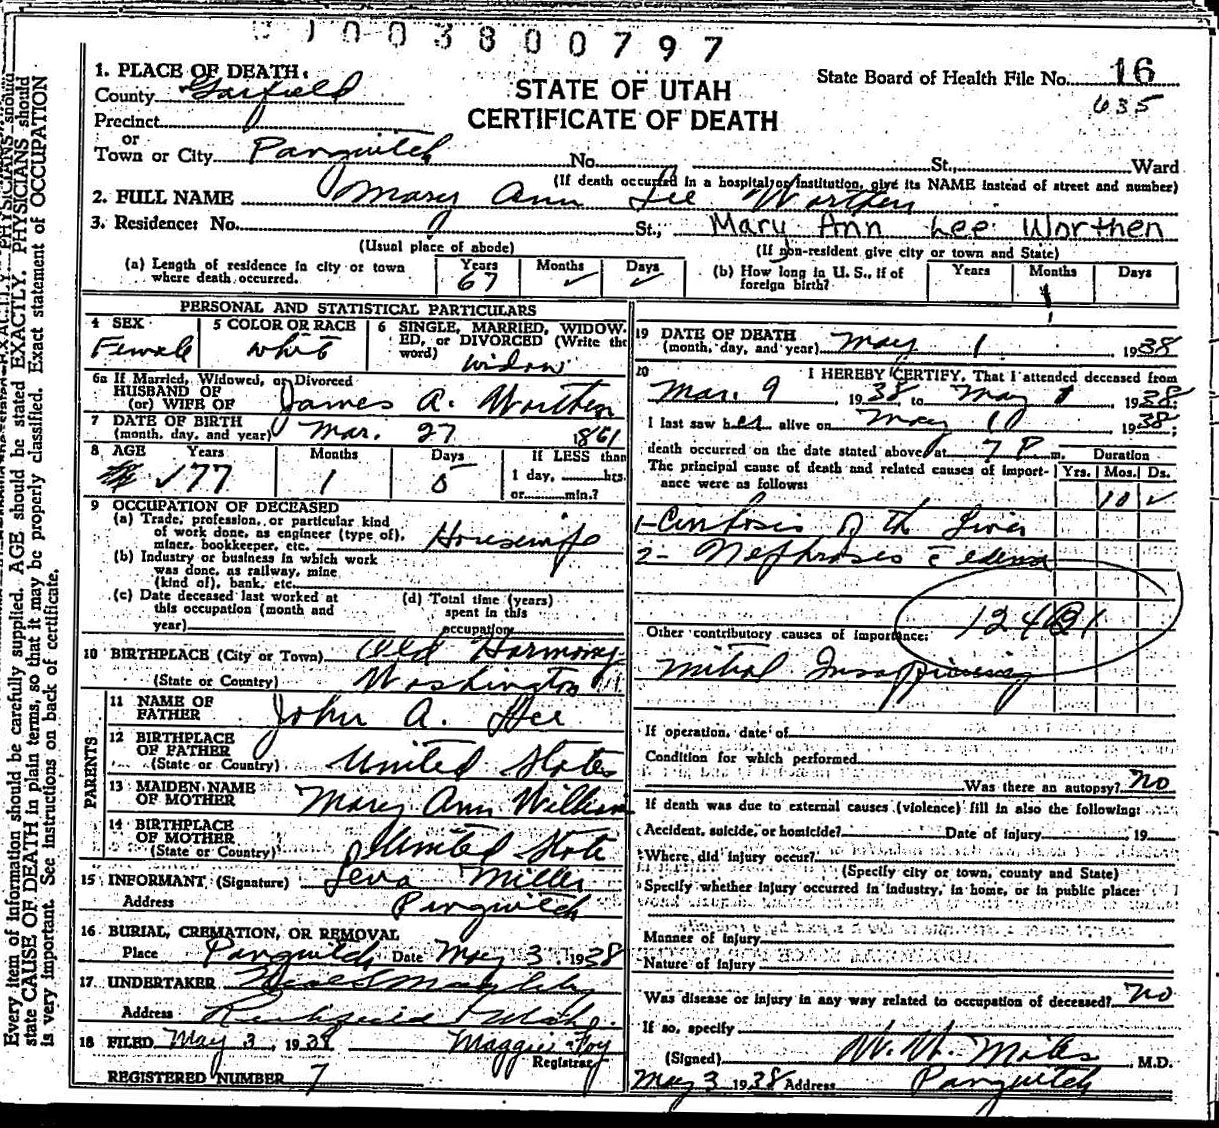 01003800797
1. PLACE OF DEATH.
County Garfield
Precinct
or
Town or City Panguitch No. St., Ward
STATE OF UTAH
CERTIFICATE OF DEATH
State Board of Health File No. 16
635
(If death occurred in a hospital or institution, give its NAME instead of street and number)
2. FULL NAME Mary Ann Lee Worthen
3. Residence: No. St., Mary Ann Lee Worthen
(Usual place of abode) (If non-resident give city or town and State)
(a) Length of residence in city or town where death occurred. Years 67 Months ✓ Days ✓
(b) How long in U. S., if of foreign birth? Years Months Days
PERSONAL AND STATISTICAL PARTICULARS
4 SEX Female
5 COLOR OR RACE white
6 SINGLE, MARRIED, WIDOWED, or DIVORCED (Write the word) widow
6a If Married, Widowed, or Divorced
HUSBAND OF
(or) WIFE OF James A. Worthen
7 DATE OF BIRTH
(month, day, and year) Mar. 27 1861
8 AGE Years 77 Months 1 Days 5 If LESS than
1 day, hrs.
or min.?
9 OCCUPATION OF DECEASED
(a) Trade, profession, or particular kind
of work done, as engineer (type of),
miner, bookkeeper, etc. Housewife
(b) Industry or business in which work
was done, as railway, mine
(kind of), bank, etc.
(c) Date deceased last worked at
this occupation (month and
year)
(d) Total time (years)
spent in this
occupation
10 BIRTHPLACE (City or Town) Old Harmony
(State or Country) Washington
PARENTS
11 NAME OF
FATHER John A. Lee
12 BIRTHPLACE
OF FATHER
(State or Country) United States
13 MAIDEN NAME
OF MOTHER Mary Ann William
14 BIRTHPLACE
OF MOTHER
(State or Country) United State
15 INFORMANT (Signature) Leva Miller
Address Panguitch
16 BURIAL, CREMATION, OR REMOVAL
Place Panguitch Date May 3, 1938
17 UNDERTAKER
Address Richfield Utah
18 FILED May 3, 1938 Maggie Foy
Registrar
REGISTERED NUMBER 7
19 DATE OF DEATH
(month, day, and year) May 1, 1938
20 I HEREBY CERTIFY, That I attended deceased from
Mar. 9, 1938, to May 1 1938
I last saw her alive on May 1 1938;
death occurred on the date stated above at 7 P m. Duration
The principal cause of death and related causes of importance were as follows: Yrs. Mos. Ds.
10 ✓
1- Cirrhosis of the Liver
2- Nephrosis c̄ edema
Other contributory causes of importance:
Mitral Insufficiency
If operation, date of
Condition for which performed
Was there an autopsy? no
If death was due to external causes (violence) fill in also the following:
Accident, suicide, or homicide? Date of injury 19
Where did injury occur?
(Specify city or town, county and State)
Specify whether injury occurred in industry, in home, or in public place:
Manner of injury
Nature of injury
Was disease or injury in any way related to occupation of deceased? no
If so, specify
(Signed) W. W. Miles, M.D.
May 3 1938 Address Panguitch
Every item of information should be carefully supplied. AGE should be stated EXACTLY. PHYSICIANS should
state CAUSE OF DEATH in plain terms, so that it may be properly classified. Exact statement of OCCUPATION
is very important. See instructions on back of certificate.